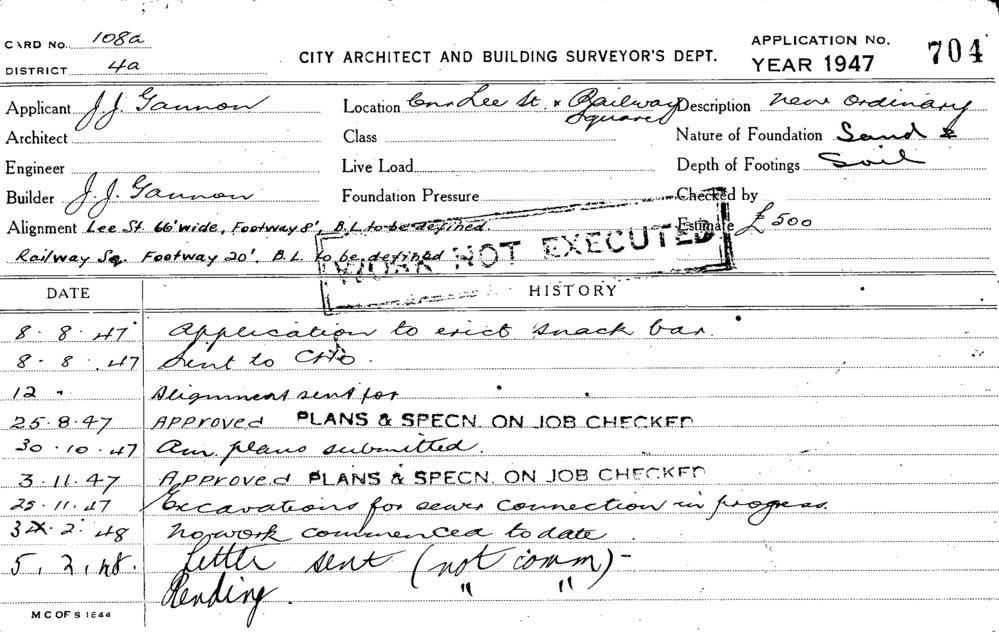 CARD No. 108a
DISTRICT 4a
CITY ARCHITECT AND BUILDING SURVEYOR'S DEPT.
APPLICATION No.
YEAR 1947
704
Applicant J.J. Gannon
Location Cnr Lee St. & Railway Square
Description New Ordinary
Architect
Class
Nature of Foundation Sand &
Engineer
Live Load
Depth of Footings Soil
Builder J.J. Gannon
Foundation Pressure
Checked by
Alignment Lee St. 66' wide, Footway 8', B.L. to be defined.
Estimate £500
Railway Sq. Footway 20', B.L. to be defined
WORK NOT EXECUTED
DATE HISTORY
8.8.47 Application to erect snack bar.
8.8.47 Sent to CHO.
12 " Alignment sent for
25.8.47 Approved PLANS & SPECN. ON JOB CHECKED
30.10.47 Am. plans submitted.
3.11.47 Approved PLANS & SPECN. ON JOB CHECKED
25.11.47 Excavations for sewer connection in progress.
3.2.48 No work commenced to date
5.2.48. Letter sent (not comm) -
Pending. " "
M C OF S 1844